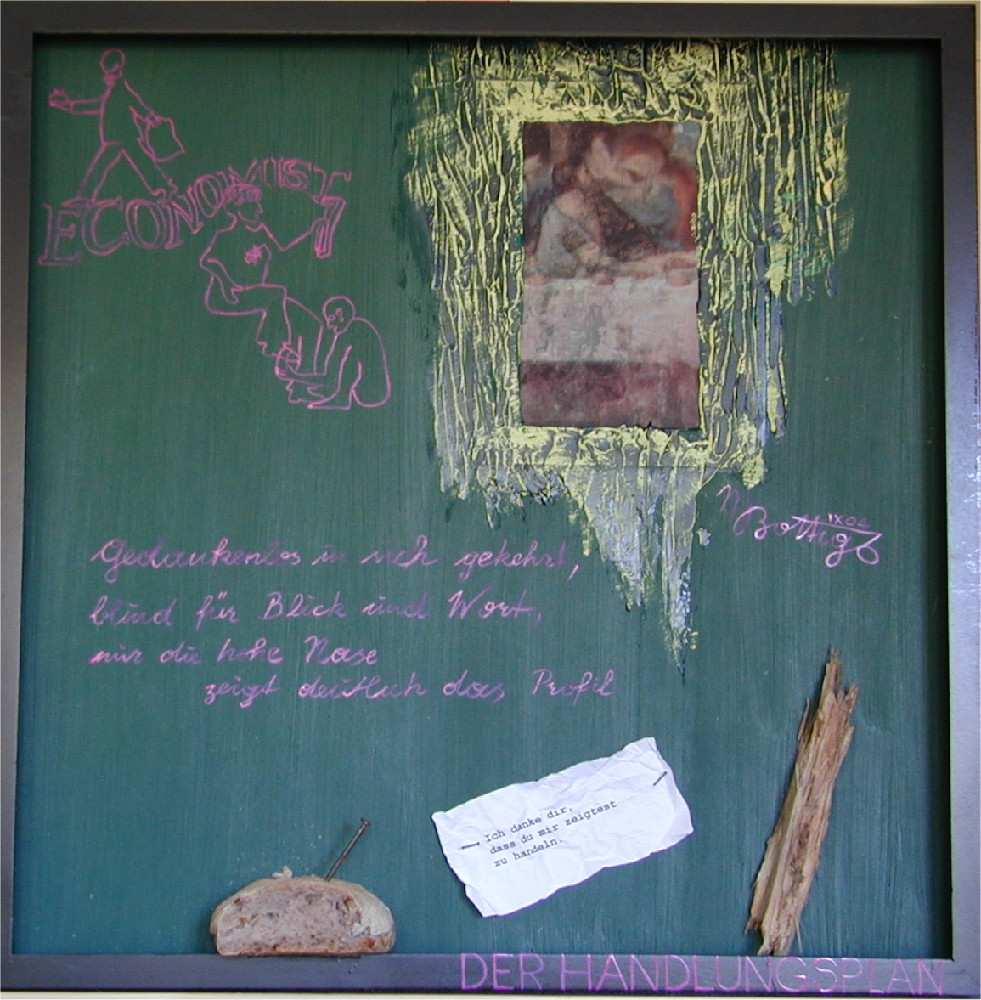 ECONOMIST
M Bottig
IX 02
Gedankenlos in sich gekehrt,
blind für Blick und Wort,
nur die hohe Nase
zeigt deutlich das Profil
Ich danke dir,
dass du mir zeigtest
zu handeln.
DER HANDLUNGSPLAN